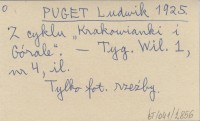 PUGET Ludwik 1925.
Z cyklu „Krakowianki i
Górale". — Tyg. Wil. 1,
nr 4, il.
Tylko fot. rzeźby.